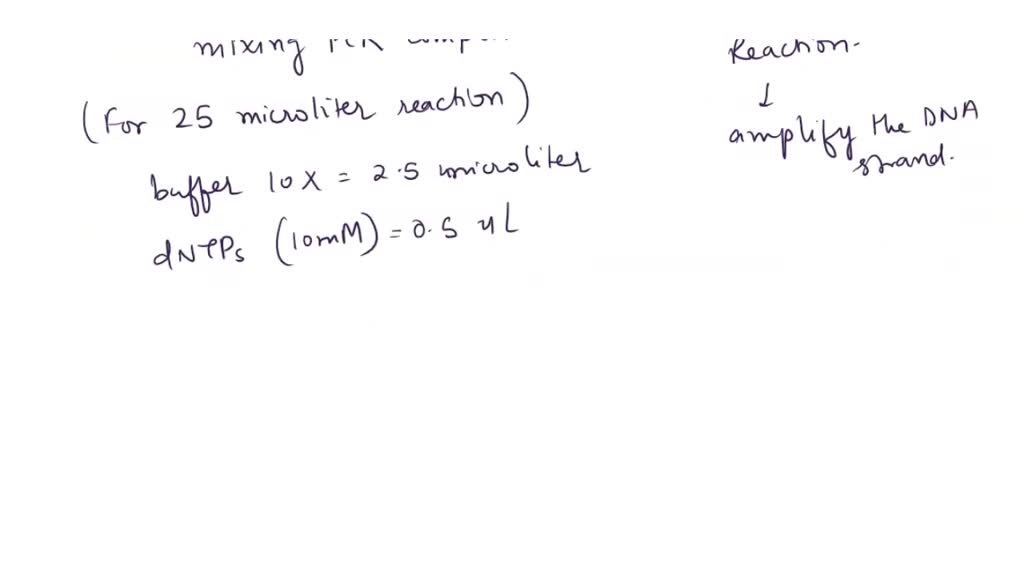 mixing
(For 25 microliter reaction)
buffer 10X = 2.5 microliter
dNTPs (10mM) = 0.5 uL
Reaction.
↓
amplify the DNA
strand.